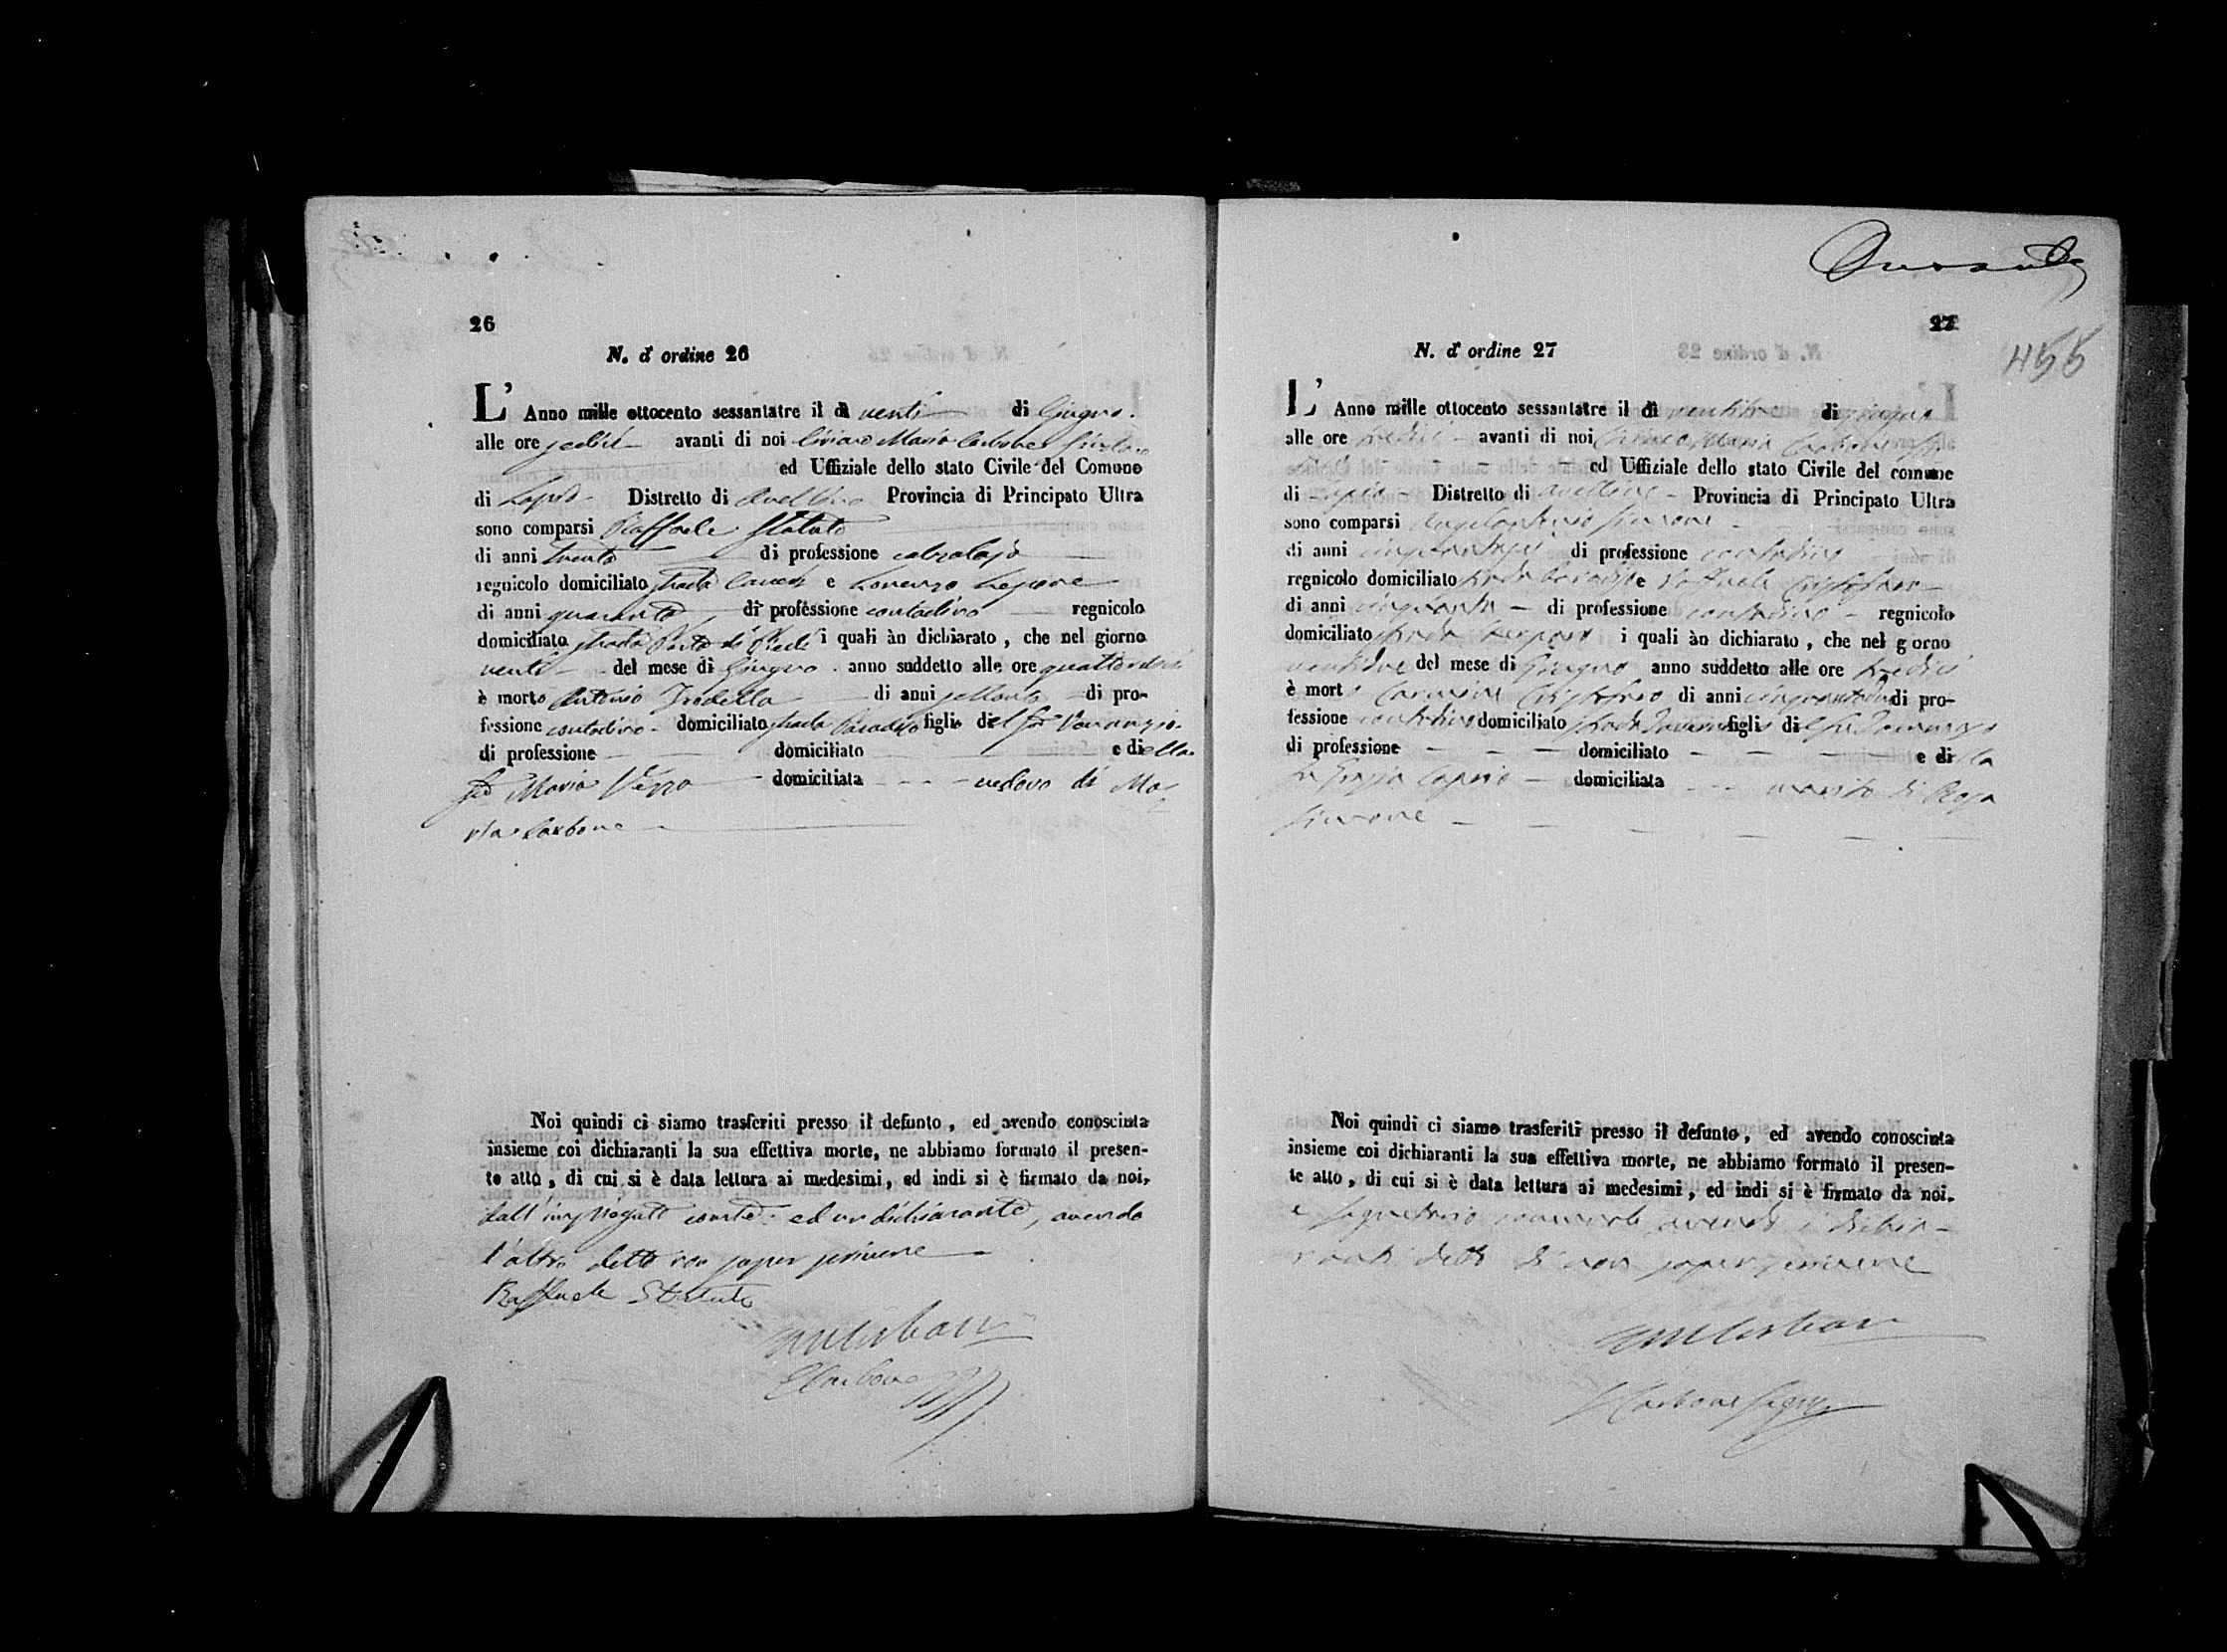 26
N. d' ordine 26
L' Anno mille ottocento sessantatre il dì venti di Giugno.
alle ore sedici avanti di noi Ciriaco Maria Carbone Sindaco
ed Uffiziale dello stato Civile del Comune
di Lapio Distretto di Avellino Provincia di Principato Ultra
sono comparsi Raffaele Statuto
di anni trenta di professione calzolajo
regnicolo domiciliato strada e Lorenzo Lepore
di anni quaranta di professione contadino regnicolo
domiciliato strada Porta di i quali àn dichiarato, che nel giorno
venti del mese di Giugno anno suddetto alle ore quattordici
è morto Antonio Trodella di anni settanta di pro-
fessione contadino domiciliato strada Paradiso figlio del fu Venanzio
di professione domiciliato e della
fu Maria domiciliata vedovo di Ma-
ria Carbone
Noi quindi ci siamo trasferiti presso il defunto, ed avendo conosciuta
insieme coi dichiaranti la sua effettiva morte, ne abbiamo formato il presen-
te atto, di cui si è data lettura ai medesimi, ed indi si è firmato da noi,
dall' ed un dichiarante, avendo
l'altro detto non saper scrivere
Raffaele Statuto
Carbone
27
455
N. d' ordine 27
L' Anno mille ottocento sessantatre il dì ventitre di giugno
alle ore tredici avanti di noi Ciriaco Maria Carbone
ed Uffiziale dello stato Civile del comune
di Lapio Distretto di Avellino Provincia di Principato Ultra
sono comparsi Angelantonio Simone
di anni cinquantasei di professione contadino
regnicolo domiciliato strada Paradiso e Raffaele Cristofaro
di anni cinquanta di professione contadino regnicolo
domiciliato strada i quali àn dichiarato, che nel giorno
ventidue del mese di Giugno anno suddetto alle ore tredici
è morto Carmine Cristofaro di anni di pro-
fessione contadino domiciliato strada figlio del fu Tommaso
di professione domiciliato e di la
fu Grazia Caprio domiciliata marito di Rosa
Simone
Noi quindi ci siamo trasferiti presso il defunto, ed avendo conosciuta
insieme coi dichiaranti la sua effettiva morte, ne abbiamo formato il presen-
te atto, di cui si è data lettura ai medesimi, ed indi si è firmato da noi.
e segretario comunale avendo i dichia-
ranti detto di non saper scrivere
Carbone